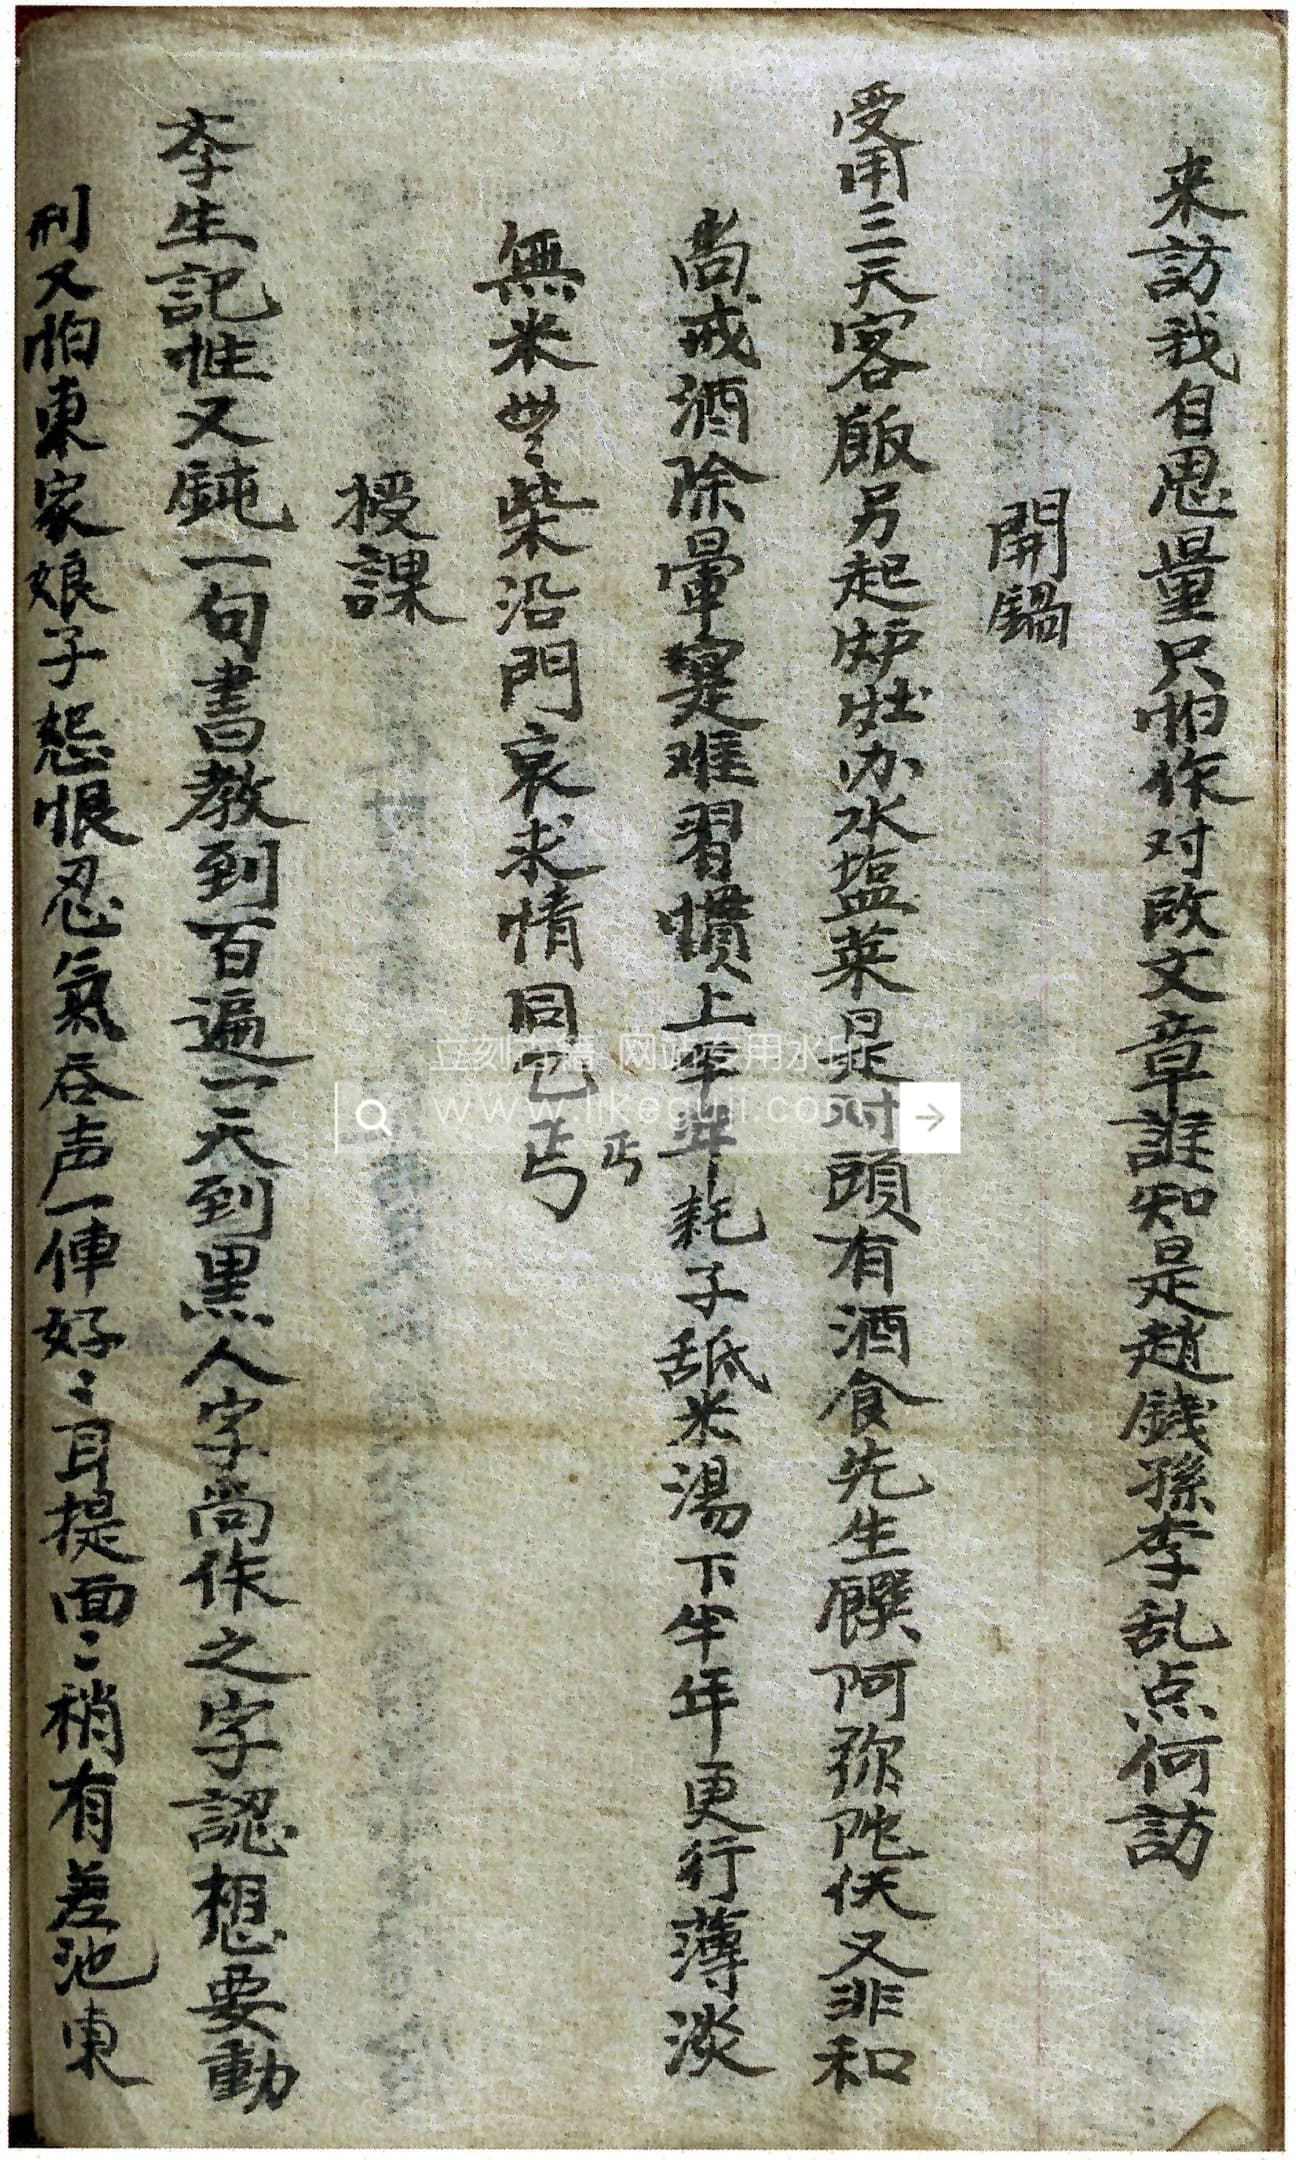 来訪我自思量只怕作对改文章誰知是趙錢孫李乱点何訪
開鍋
受用三天客飯另起炉灶办水塩菜是对頭有酒食先生饌阿弥陀伕又非和
尚戒酒除暈寔难習慣上半年耗子舐米湯下半年更行薄淡
無米無柴沿門哀求情同乞丐
丐
授課
李生記性又鈍一句書教到百遍一天到黑人字尚作之字認想要動
刑又怕東家娘子怨恨忍氣吞声一俥好〻耳提面〻稍有差池東
立刻古籍 网站专用水印
www.likeguji.com